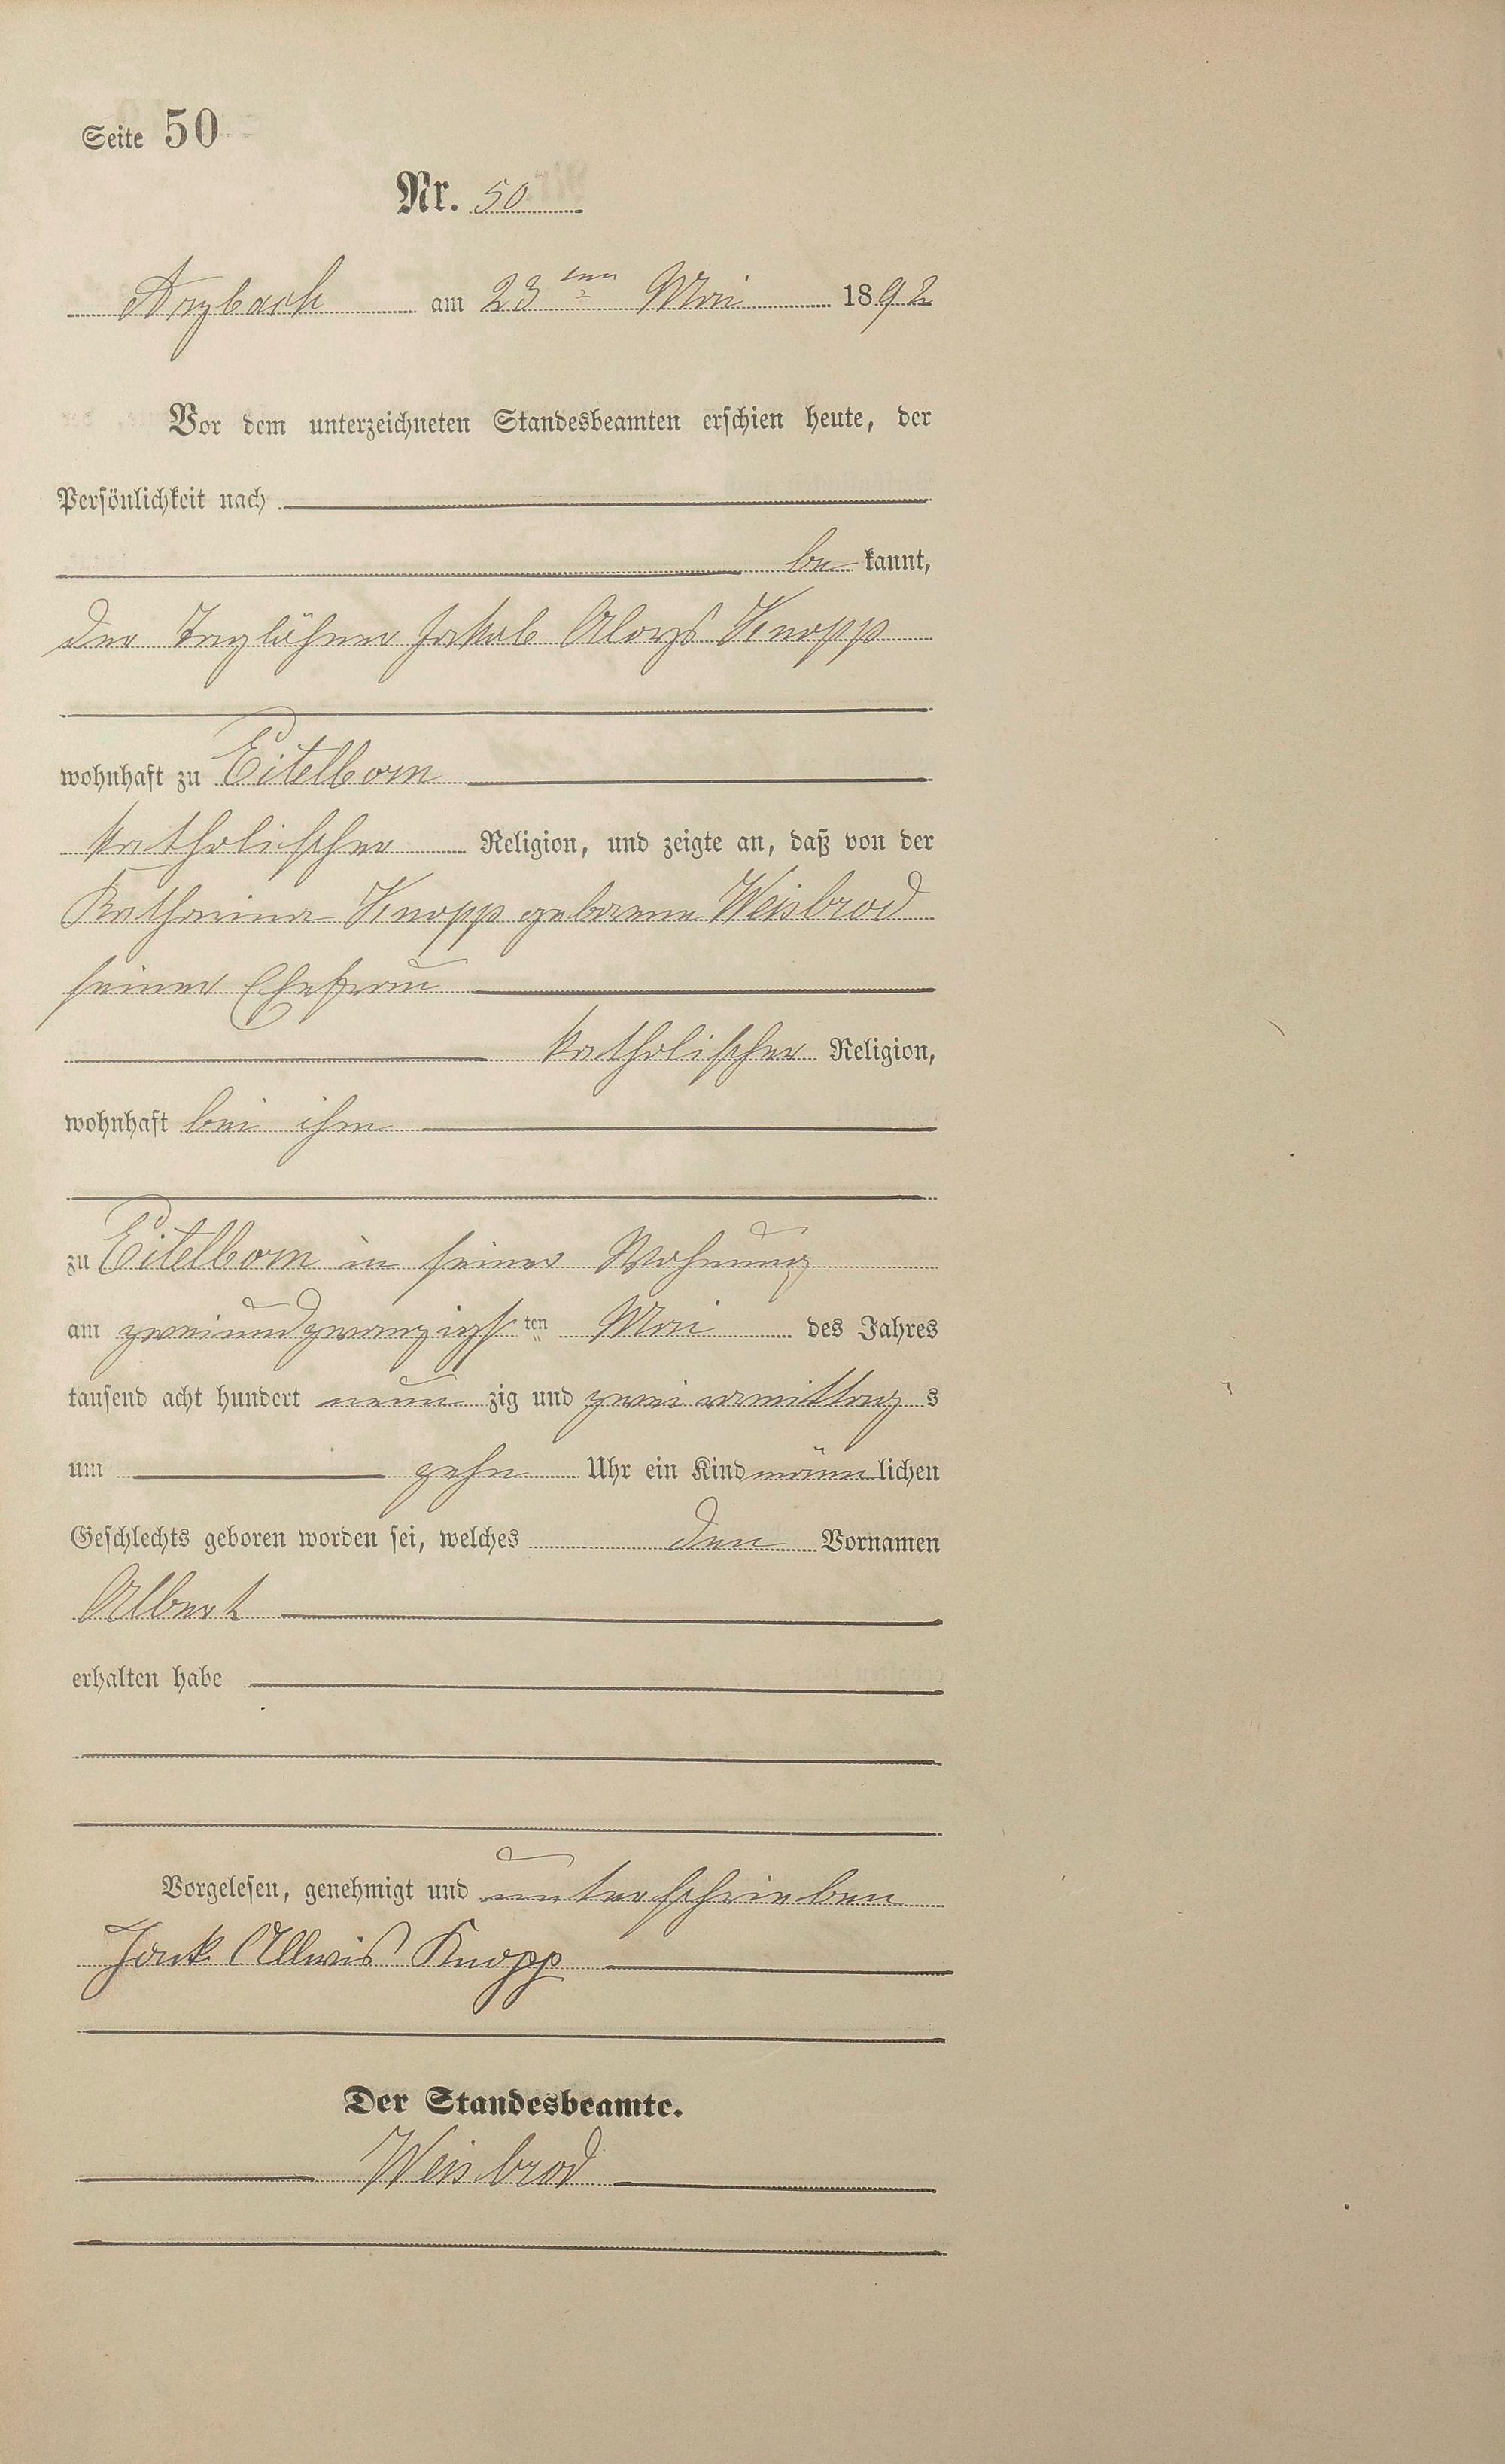 Seite 50
Nr. 50
Arzbach am 23ten Mai 1892
Vor dem unterzeichneten Standesbeamten erschien heute, der
Persönlichkeit nach
be kannt,
der Taglöhner Jakob Aloys Knopp
wohnhaft zu Eitelborn
katholischer Religion, und zeigte an, daß von der
Katharina Knopp geborene Weisbrod
seiner Ehefrau
katholischer Religion,
wohnhaft bei ihm
zu Eitelborn in seiner Wohnung
am zweiundzwanzigsten Mai des Jahres
tausend acht hundert neun zig und zwei vormittags
um zehn Uhr ein Kind männlichen
Geschlechts geboren worden sei, welches den Vornamen
Albert
erhalten habe
Vorgelesen, genehmigt und unterschrieben
Jak Allwis Knopp
Der Standesbeamte.
Weisbrod